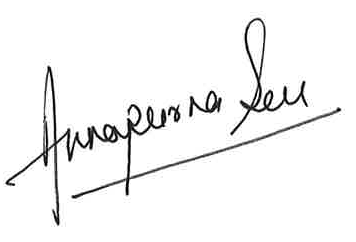 Annapurna Sen